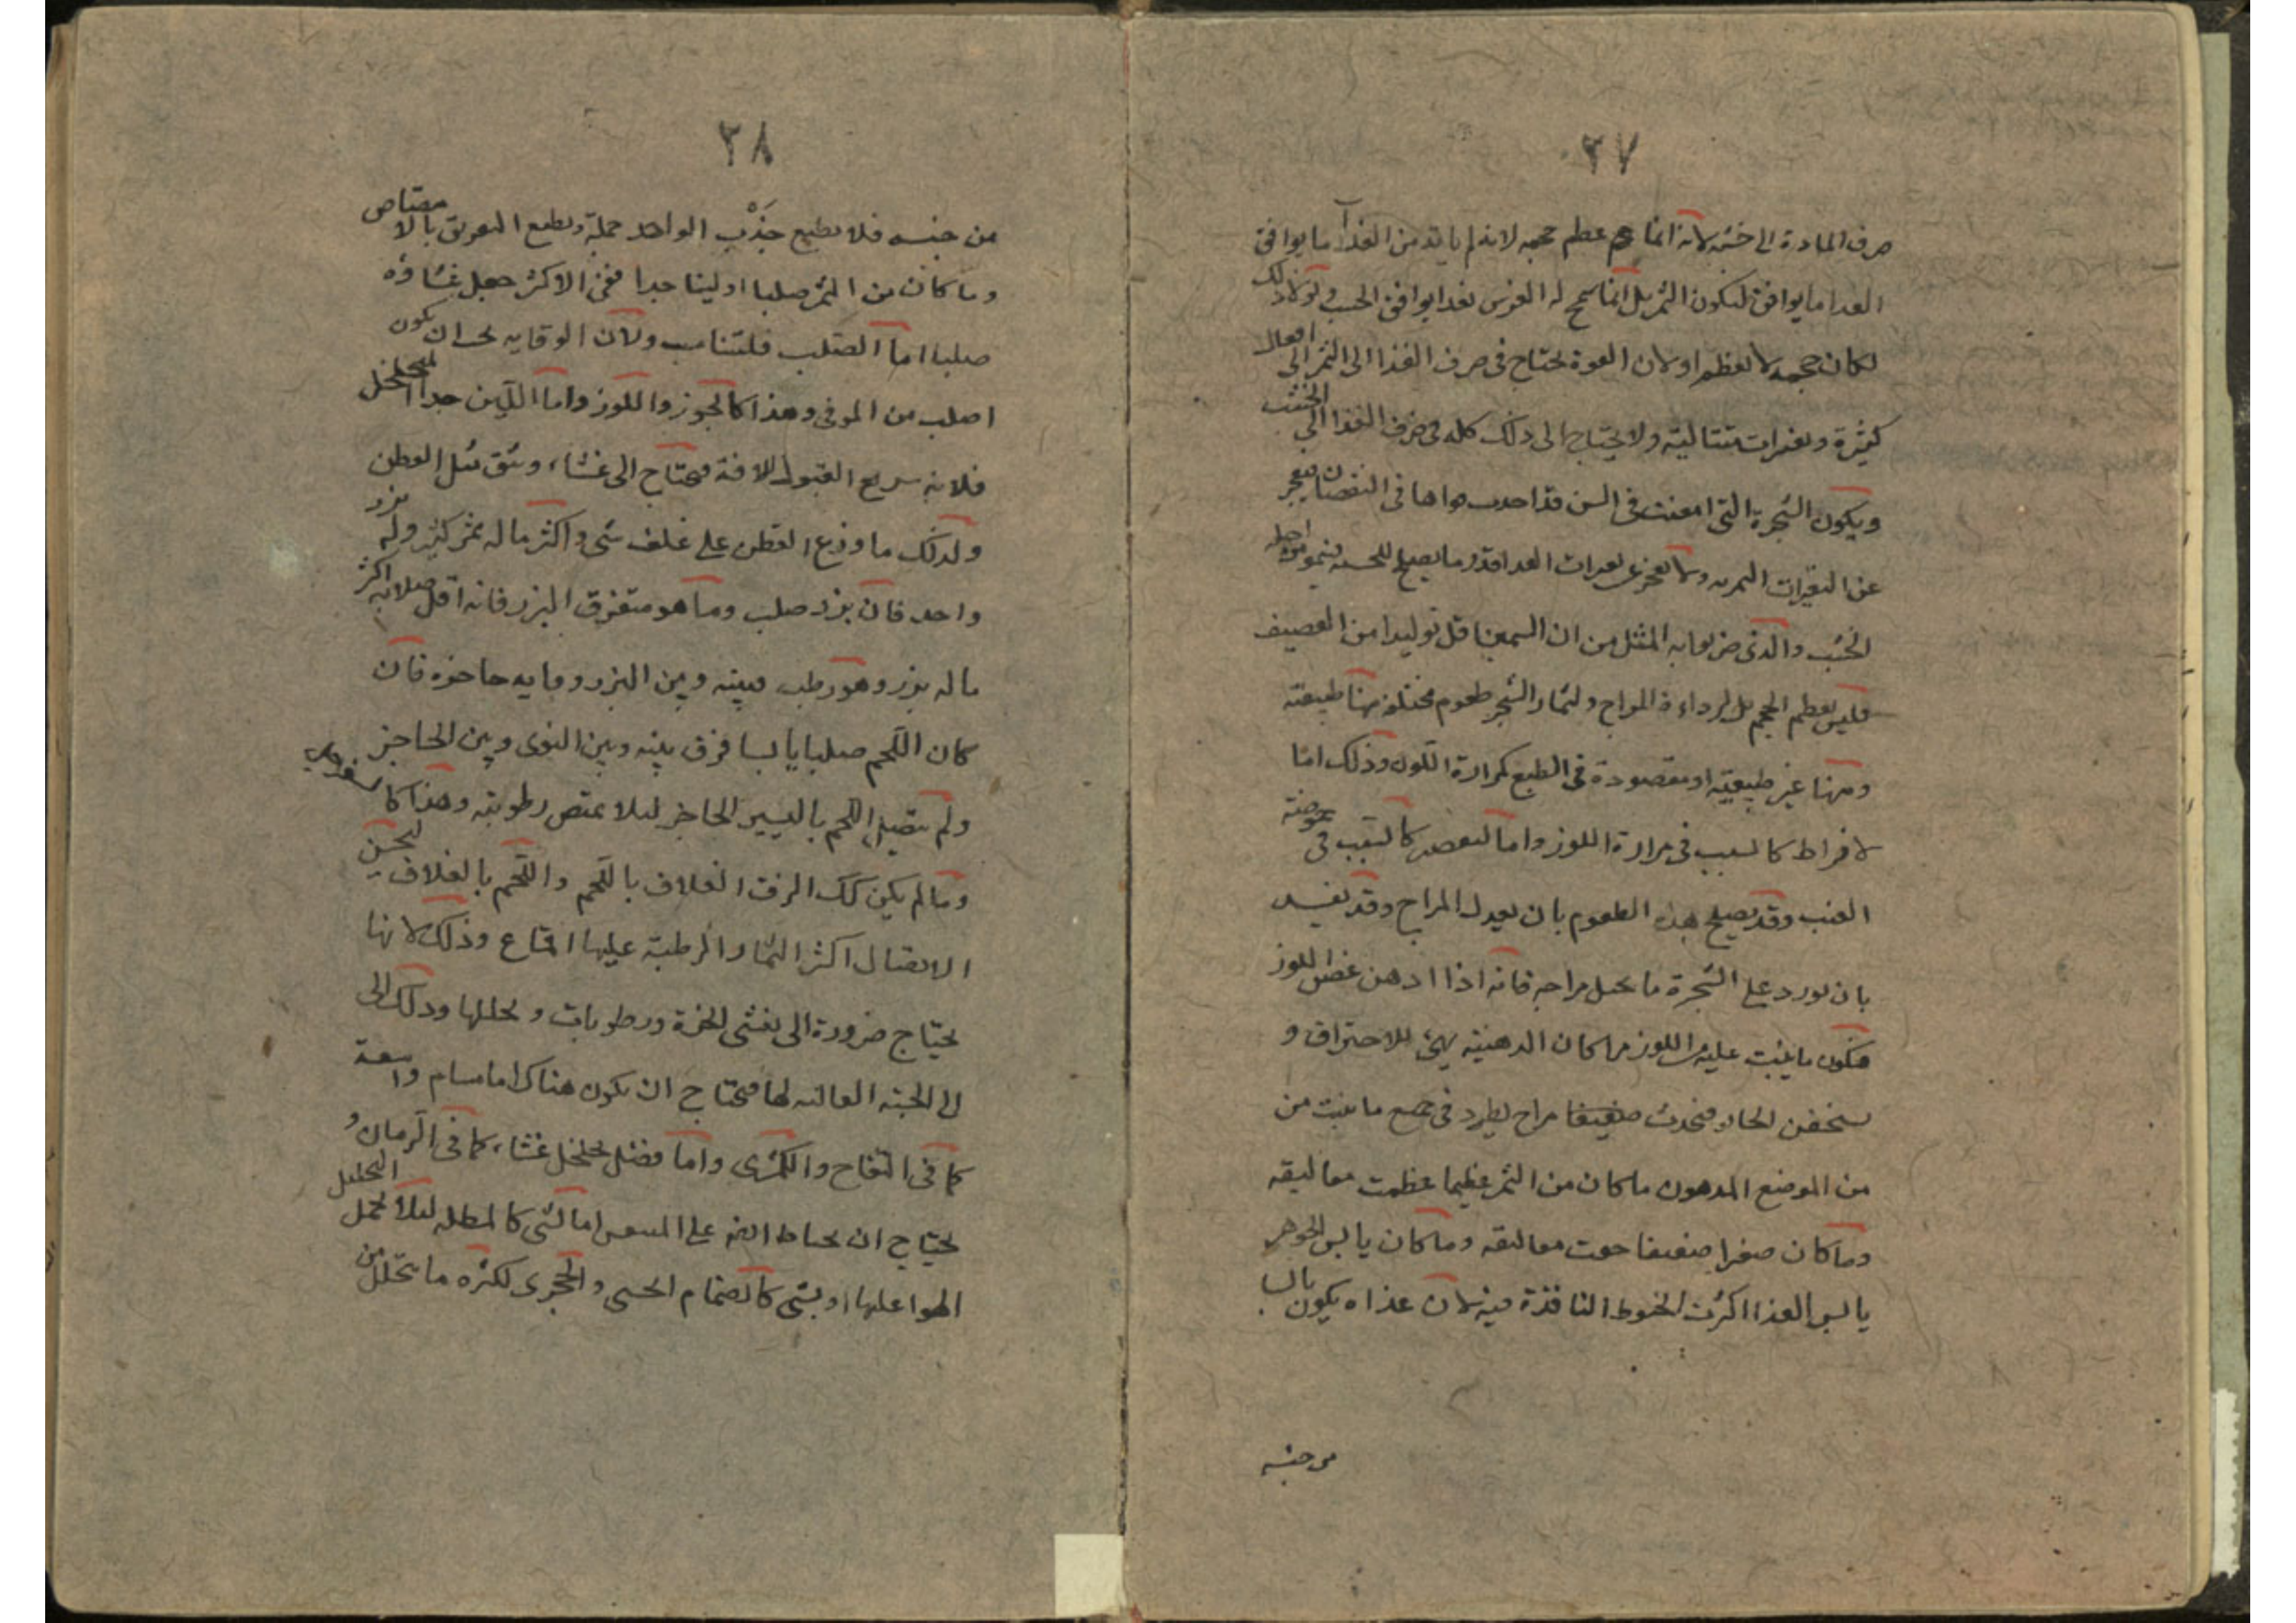 ٢٧
صرف المادة الى خشبه لانه انما عظم حجمه لانه لم ياته من الغذا ما يوافق
الغدا ما يوافق ليكون الثمر بل انما سمح له الغرس بغدا يوافق الخشب ولولا ذلك
لكان حجمه لا يعظم او لان القوة تحتاج فى صرف الغذا الى الثمر الى افعال
كثيرة وتغيرات متتالية ولا يحتاج الى ذلك كله فى صرف الغذا الى الخشب
ويكون الشجرة التى امعنت فى السن قد اخذت قواها فى النقصان فيعجز
عن التغيرات الثمريه ولا تعجز عن تغيرات الغدا قدر ما يصلح للخشبيه فينمو من اجله
الخشب والذى ضربوا به المثل من ان السمين اقل توليدا من القصيف
فليس لعظم الحجم بل لرداءة المزاج ولثمار الشجر طعوم مختلفه منها طبيعيّة
ومنها غير طبيعيّة او مقصودة فى الطبع كمرارة اللوز وذلك امّا
لافراط كالسبب فى مرارة اللوز واما لتقصير كالسبب فى حموضة
العنب وقد يصلح هذه الطعوم بان يعدل المزاج وقد يفسد
بان يورد على الشجرة ما يحيل مزاجه فانه اذا ادهن غصن اللوز
فيكون ما ينبت عليه من اللوز مرا كان الدهنية يهئ للاحتراق و
فيحدث مزاج يطرد فى جميع ما ينبت من
من الموضع المدهون ما كان من الثمر عظيما عظمت معاليقه
وما كان صغيرا ضعيفا معاليقه وما كان يابس الجوهر
يابس الغذا اكثرت الخيوط النافذة فيه لان غذاه يكون يابسا
من جنسه
٢٨
من جنسه فلا يطيع جَذْب الواحد جملة ويطيع التفريق بالامتصاص
وما كان من الثمر صلبا او لينا جدا ففى الاكثر جعل غشاؤه
صلبا اما الصّلب فلتناسب ولان الوقايه يجب ان يكون
اصلب من الموقى وهذا كالجوز واللوز واما اللّين جدا المتخلخل
فلانه سريع القبول للافة فيحتاج الى غشاء وثيق مثل القطن
ولذلك ما وزع القطن على غلف شتى واكثر ماله ثمر كثير وله بزر
واحد فان بزره صلب وما هو متفرق البزر فانه اقل صلابه اكثر
ماله بزر وهو رطب فبينه وبين البزر وقايه حاجزه فان
كان اللّحم صلبا يابسا فرق بينه وبين النوى وبين الحاجز
ولم يتصل اللحم باليسير الحاجز لئلا يمتص رطوبته وهذا كا
وما لم يكن كك الزق الغلاف باللّحم واللّحم بالغلاف ليحسن
الاتصال اكثر الثمار الرطبة عليها اقماع وذلك لانها
يحتاج ضرورة الى تفشى ابخرة ورطوبات وتحللها وذلك الى
الى الجنبه العاليه لها فيحتاج ان يكون هناك اما مسام واسعة
كما فى التفاح والكمّثرى واما فضل تخلخل غشاء كما فى الرّمان و
يحتاج ان يحتاط على اما لشئ كالمظله لئلا التحليل
الهوا عليها او بشئ كالصمام والحجرى لكثرة ما يتحلل من